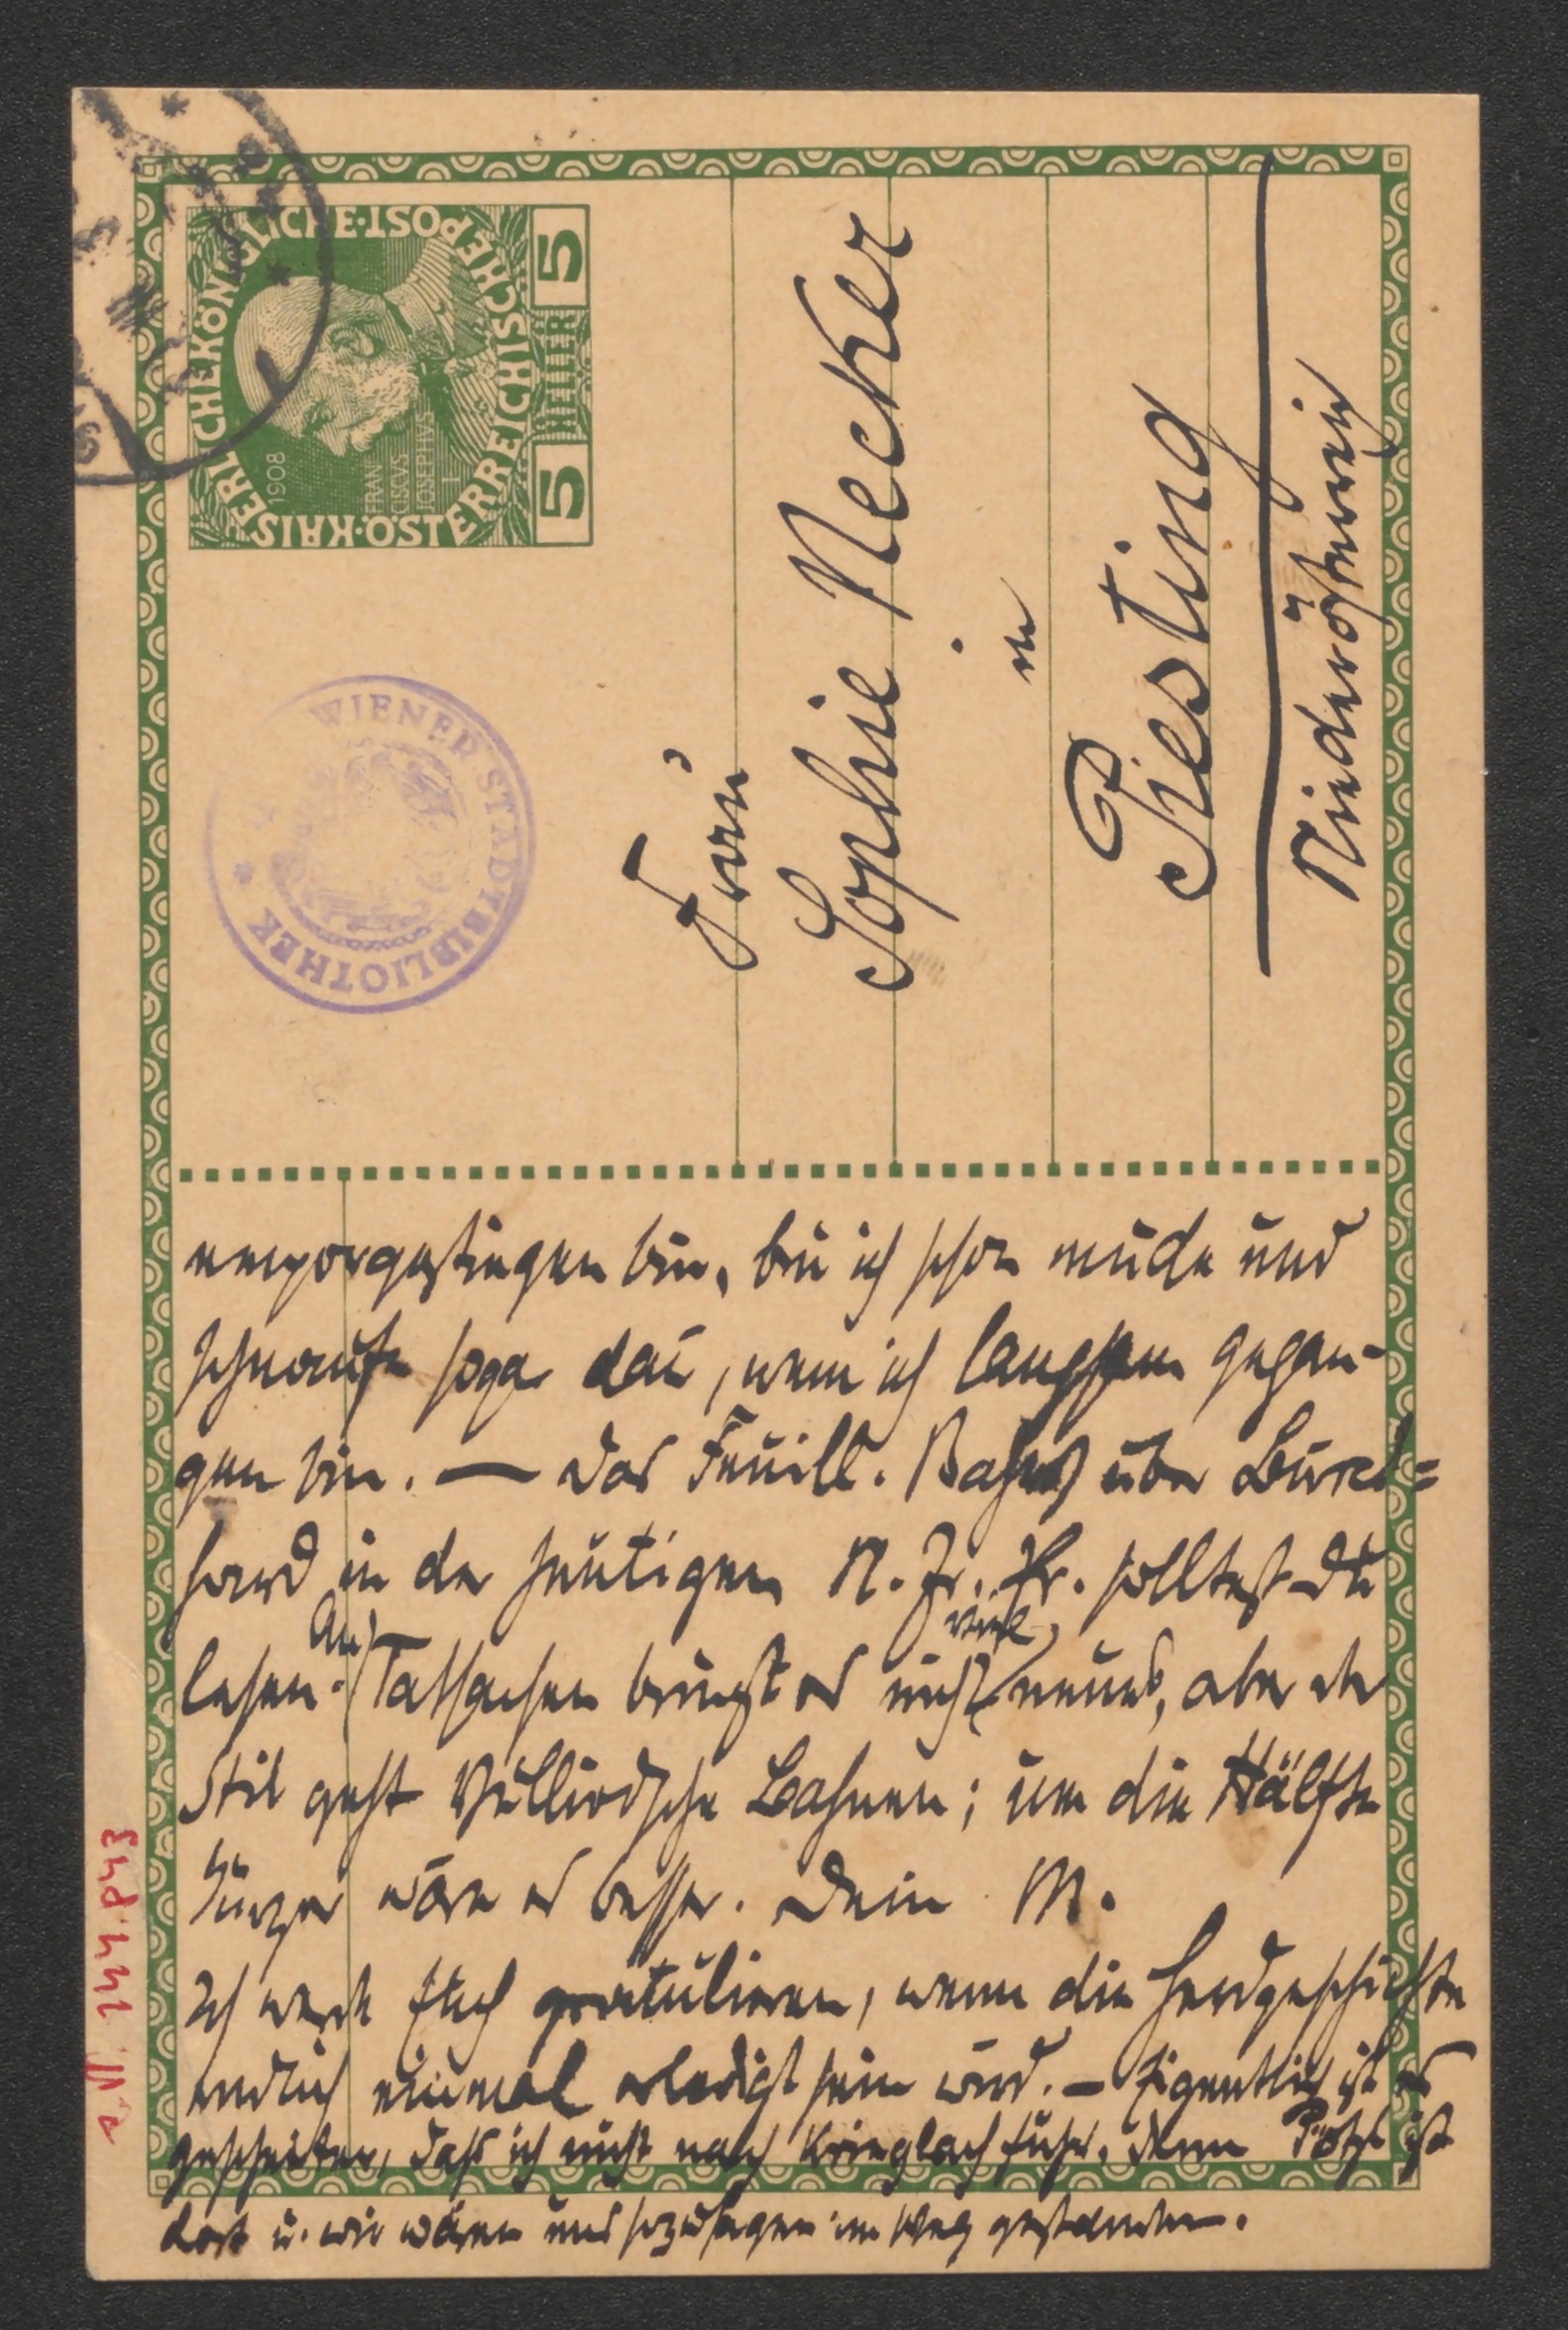 KAISERLICHE KÖNIGLICHE · POST
ÖSTERREICHISCHE
1908
FRAN
CISCVS
JOSEPHVS
I
5 HELLER 5
WIENER STADTBIBLIOTHEK
Frau
Sophie Necker
in
Piesting
Niederösterreich
emporgestiegen bin, bin ich schon müde und
schnaufe sogar dan, wenn ich langsam gegan-
gen bin. — Das Feuill. Bahrs über Burck=
hard in der heutigen N. Fr. Pr. solltest Du
lesen. An Tatsachen bringt es nicht viel neues, aber der
Stil geht Bahnen; um die Hälfte
kürzer wäre es besser. Dein M.
Ich werde Euch gratulieren, wenn die Herdgeschichte
endlich einmal erledigt sein wird. – Eigentlich ist es
gescheiter, daß ich nicht nach Krieglach fuhr. Denn Pötzl ist
dort u. wir wären uns sozusagen im Weg gestanden.